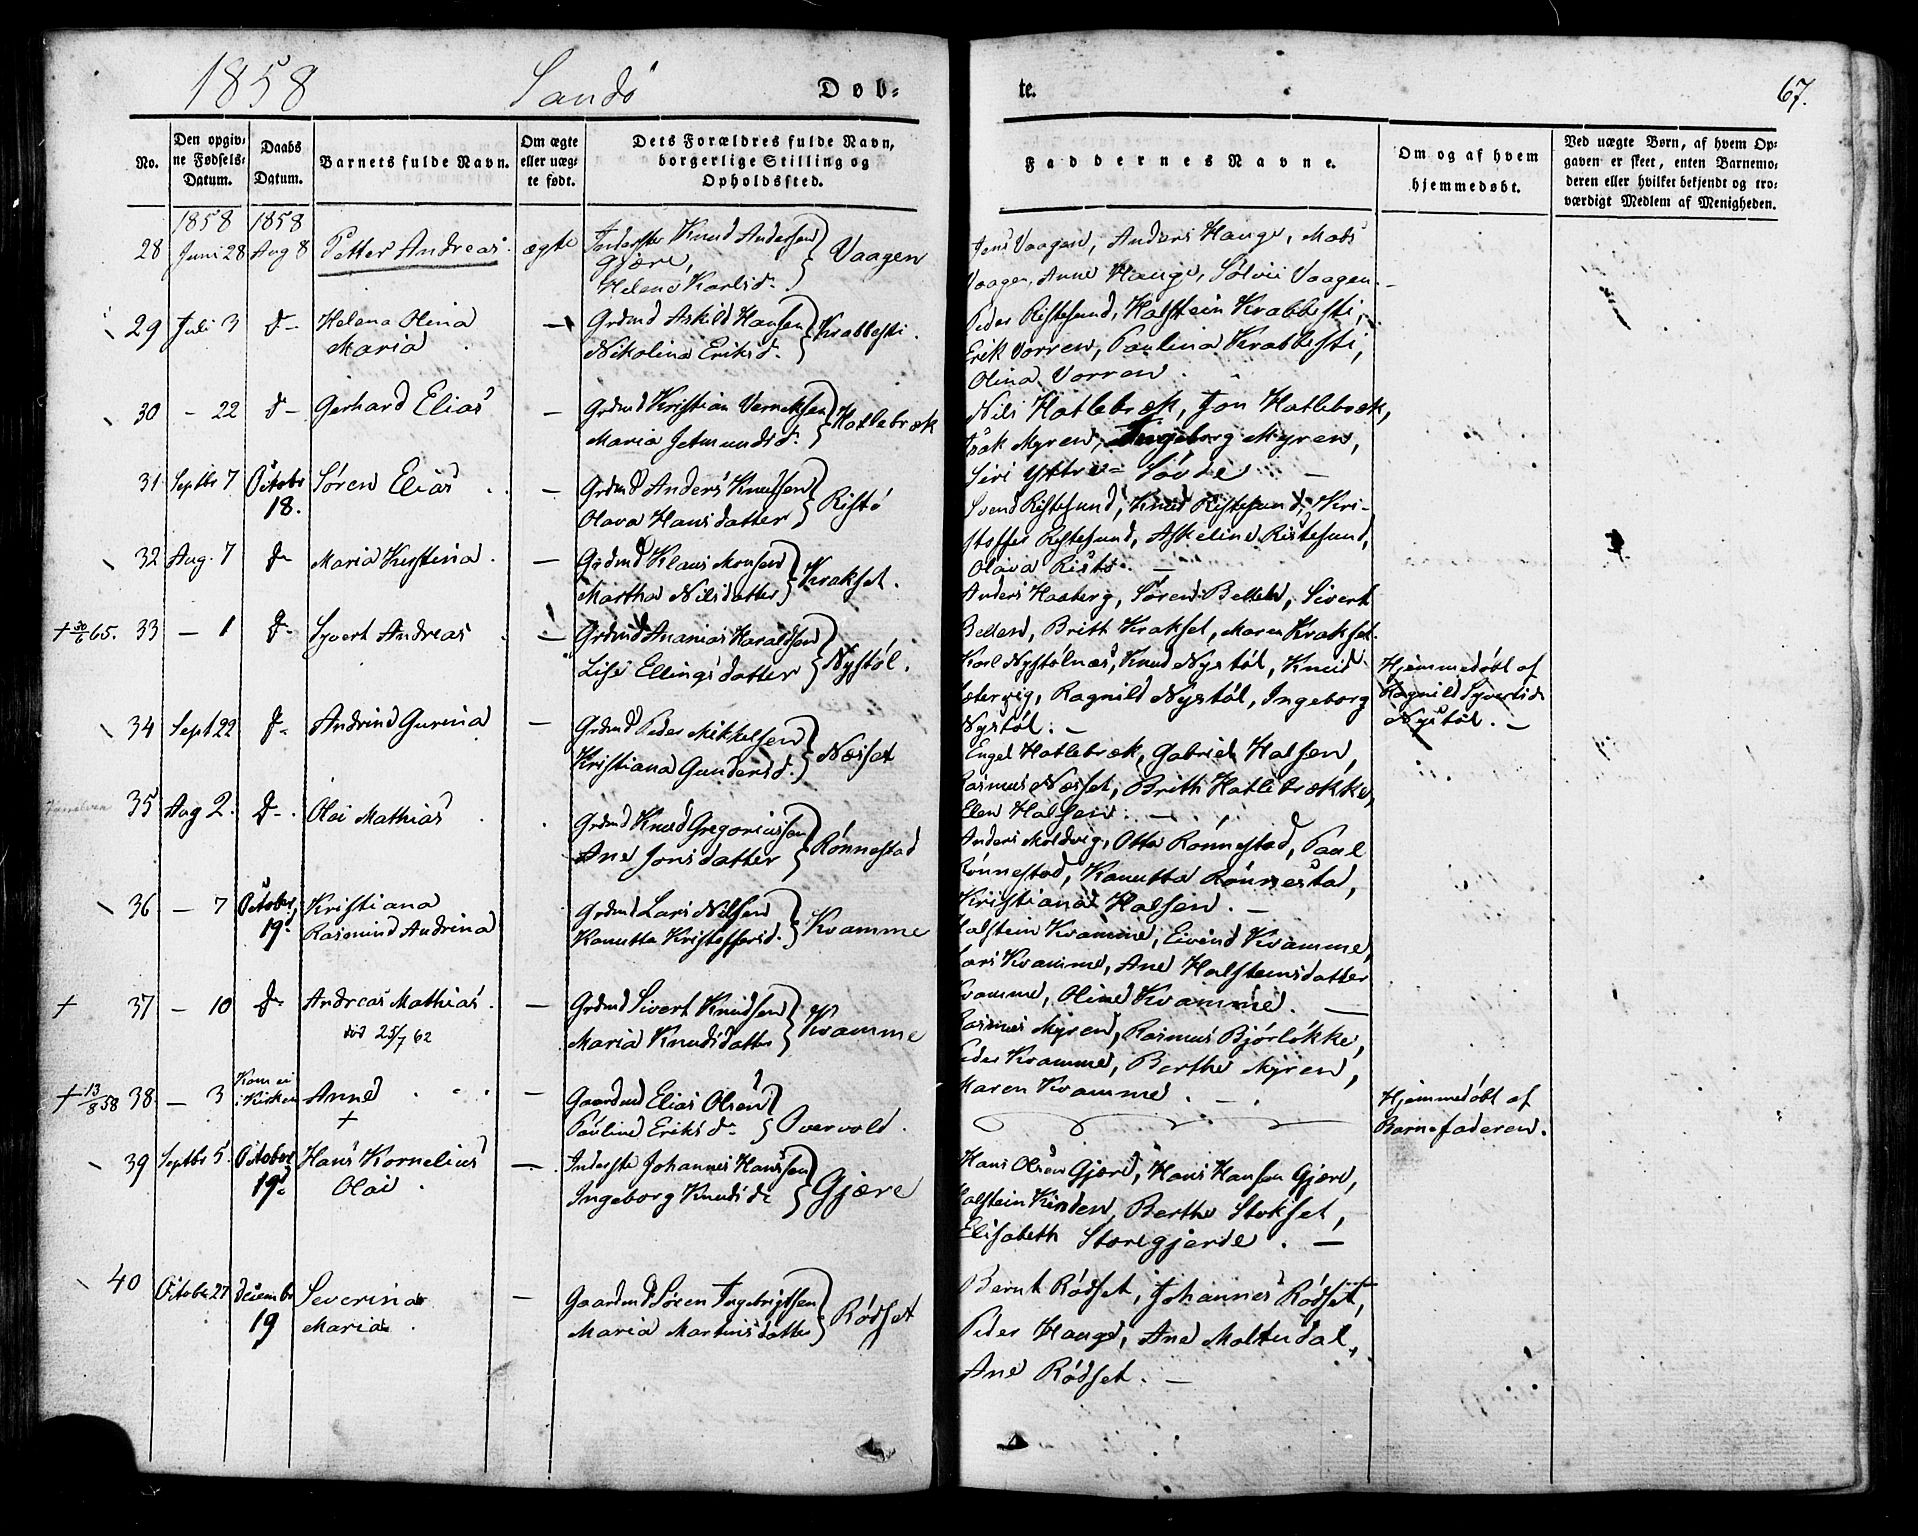 1858 Sandö Døb-
te. 67.
No.
Den opgiv-
ne Fødsels-
Datum.
Daabs
Datum.
Barnets fulde Navn.
Om ægte
eller uæg-
te født.
Dets Forældres fulde Navn,
borgerlige Stilling og
Opholdssted.
Faddernes Navne.
Om og af hvem
hjemmedøbt.
Ved uægte Børn, af hvem Op-
gaven er skeet, enten Barnemo-
deren eller hvilket bekjendt og tro-
værdigt Medlem af Menigheden.
1858 1858
28 Juni 28 Aug 8 Petter Andreas. ægte Inderster Knud Andersen
Gjære,
Helene Karlsd. Vaagen
Jens Vaagen, Anders Hauge, Mats
Vaagen, Anne Hauge, Sølvie Vaagen.
29 Juli 3 d- Helena Olina
Maria
— Grdmd Askild Hansen
Nikolina Eriksd. Krabbesti.
Peder Ristesund, Halstein Krabbesti,
Erik Vorren, Paulina Krabbesti,
Olina Vorren.
30 - 22 d- Gerhard Elias — Grdmd Kristian Verniksen
Maria Jetmundsd. Hatlebræk
Nils Hatlebræk, Jon Hatlebræk,
Isak Myren, Ingeborg Myren,
Siri Yttre-Søvde —
31 Septbr 7 October
18.
Søren Elias — Grdmd Anders Knudsen
Olava Hansdatter Ristö
Svend Ristesund, Knud Ristesund, Kri-
stoffer Ristesund, Askeline Ristesund,
Olava Ristö. —
32 Aug. 7 d- Maria Kristina. — Grdmd Klaus Monsen
Martha Nilsdatter Krakset.
Anders Haaberg, Søren Bellen, Sivert
Bellen, Brith Krakset, Maren Krakset.
+ 30/6 65. 33 — 1 d- Syvert Andreas — Grdmd Ananias Haraldsen
Lise Ellingsdatter Nystøl.
Karl Nystølnæs, Knud Nystøl, Knud
Sætervig, Ragnild Nystøl, Ingeborg
Nystøl. —
Hjemmedöbt af
Ragnild Syvertsd.
Nystøl. —
34 Sept 22 d- Andrine Gurina — Grdmd Peder Mikkelsen
Kristiana Gundersd. Næsset
Engel Hatlebræk, Gabriel Halsen,
Rasmus Næsset, Brith Hatlebrække,
Elen Halsen. —
35 Aug 2. d-. Olai Mathias Grdmd Knud Gregoriussen
Ane Jonsdatter Rønnestad
Anders Moldvig, Otto Rønnestad, Paul
Rønnestad, Kanutta Rønnestad,
Kristiana Halsen. —
36 — 7 October,
19.
Kristiana
Rasmine Andrina
Grdmd Lars Nilsen
Kanutta Kristoffersd. Kvamme
Halstein Kvamme, Eivind Kvamme,
Lars Kvamme, Ane Halsteinsdatter
Kvamme, Oline Kvamme. —
+ 37 — 10 d- Andreas Mathias.
död 25/7 62
— Grdmd Sivert Knudsen
Maria Knudsdatter Kvamme
Rasmus Myren, Rasmus Bjørløkke,
Peder Kvamme, Berthe Myren,
Karen Kvamme. —
+ 13/8 58 38. — 3 Kom ei
i Kirken
Anne
+
— Gaardmd Elias Olsen
Pauline Eriksd. Overvold.
Hjemmedöbt af
Barnefaderen.
39 Septbr 5. October
19.
Hans Kornelius
Olai.
—. Inderste Johannes Hanssen
Ingeborg Knudsd. Gjære
Hans Olsen Gjære, Hans Hansen Gjære,
Halstein Kinden, Berthe Stokset,
Elisabeth Storegjerde. —
40 October 27 Decembr
19
Severina
Maria.
— Gaardmd Søren Ingebrigtsen
Maria Martinsdatter Rødset
Bernt Rødset, Johannes Rødset,
Peder Hauge, Ane Molteudal,
Ane Rødset. —